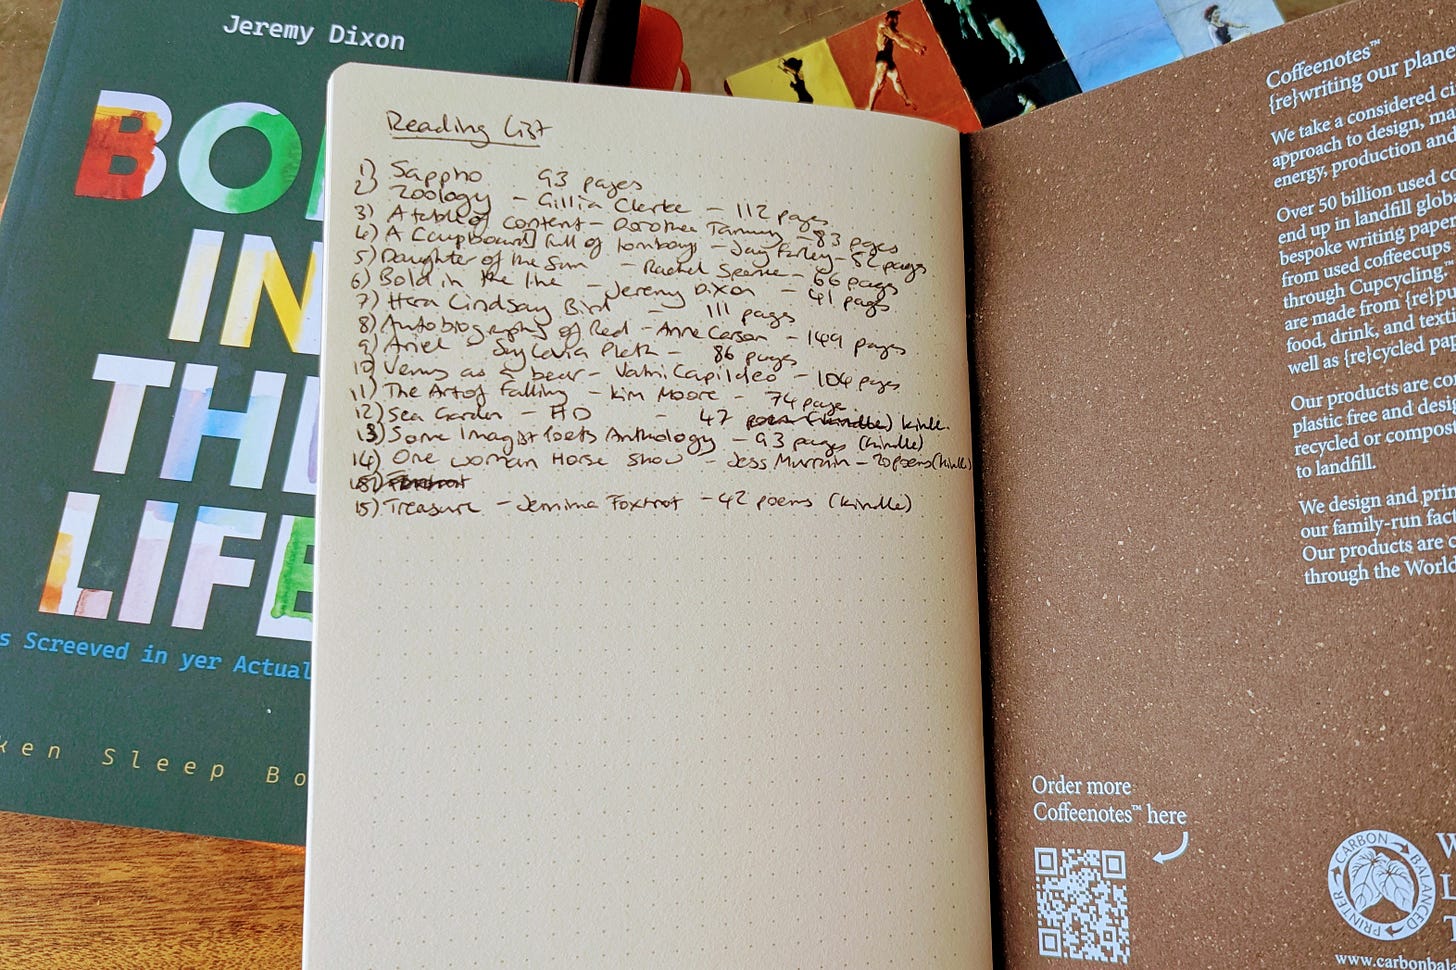 Jeremy Dixon
BO
IN
THE
LIFE
s Screeved in yer Actual
ken Sleep Bo
Reading List
1) Sappho 93 pages
2) Zoology - Gillia Clarke - 112 pages
3) A table of content - Dorothea Tanning - 83 pages
4) A Coupboard full of tomboys - Jay Farley - 52 pages
5) Daughter of the Sun - Rachel Spence - 66 pages
6) Bold in the line - Jeremy Dixon - 41 pages
7) Hera Lindsay Bird - 111 pages
8) Autobiography of Red - Anne Carson - 149 pages
9) Ariel - Sylvia Plath - 86 pages
10) Venus as a bear - Vahni Capildeo - 104 pages
11) The Art of Falling - Kim Moore - 74 page
12) Sea Garden - HD - 47 poems (kindle) kindle.
13) Some Imagist Poets Anthology - 93 pages (kindle)
14) One woman Horse show - Jess Murrain - 20 poems (kindle)
15) Treasure - Jemima Foxtrot - 42 poems (kindle)
Coffeenotes™
{re}writing our plane
We take a considered ci
approach to design, ma
energy, production and
Over 50 billion used co
end up in landfill glob
bespoke writing paper
from used coffeecups
through Cupcycling.™
are made from {re}pu
food, drink, and texti
well as {re}cycled pap
Our products are co
plastic free and desig
recycled or compost
to landfill.
We design and prin
our family-run fact
Our products are c
through the World
Order more
Coffeenotes™ here
CARBON BALANCED PRINTER
W
L
T
www.carbonbala